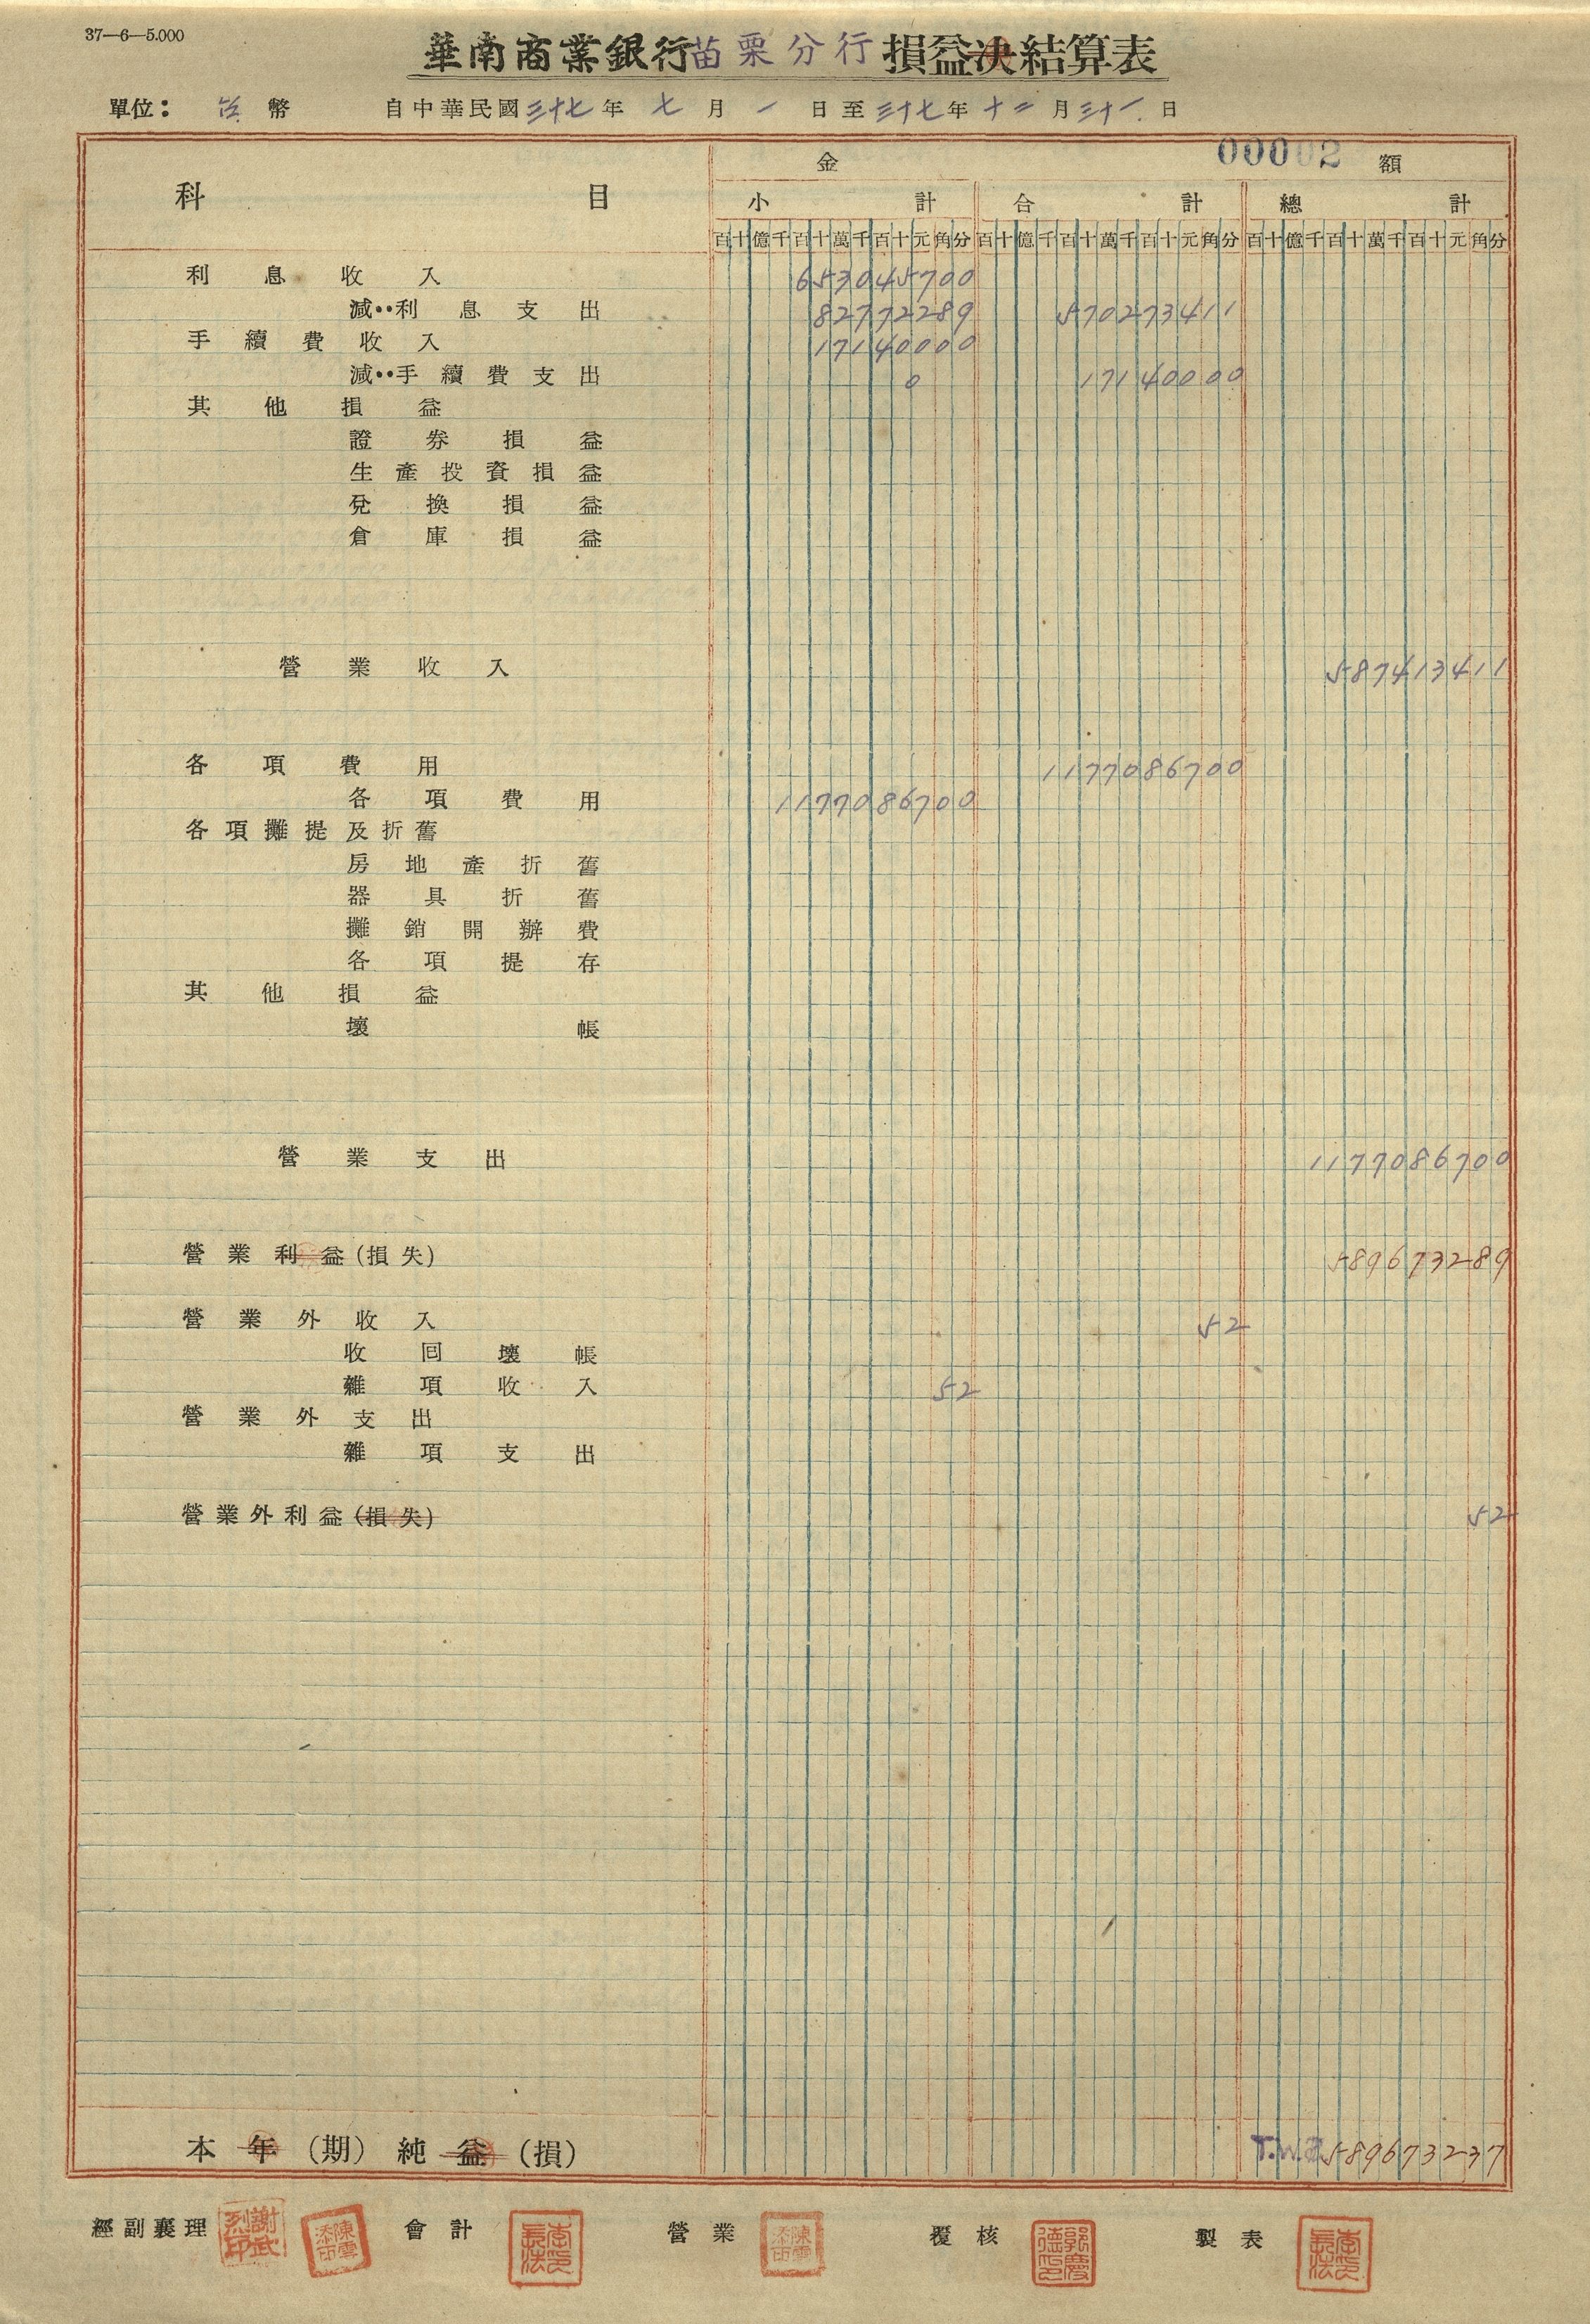 37—6—5.000
華南商業銀行苗栗分行損益决結算表
單位：台幣 自中華民國三十七年七月一日至三十七年十二月三十一日
00002
科目 金額
小計 合計 總計
百十億千百十萬千百十元角分 百十億千百十萬千百十元角分 百十億千百十萬千百十元角分
利息收入 653045700
減‥利息支出 82772289 570273411
手續費收入 17140000
減‥手續費支出 0 17140000
其他損益
證券損益
生產投資損益
兌換損益
倉庫損益
營業收入 587413411
各項費用 1177086700
各項費用 1177086700
各項攤提及折舊
房地產折舊
器具折舊
攤銷開辦費
各項提存
其他損益
壞帳
營業支出 1177086700
營業利益(損失) 589673289
營業外收入 52
收回壞帳
雜項收入 52
營業外支出
雜項支出
營業外利益(損失) 52
本年(期)純益(損) T.W.$589673237
經副襄理 謝武烈印 陳雲添印 會計 李長法印 營業 陳雲添印 覆核 郭慶德印 製表 李長法印